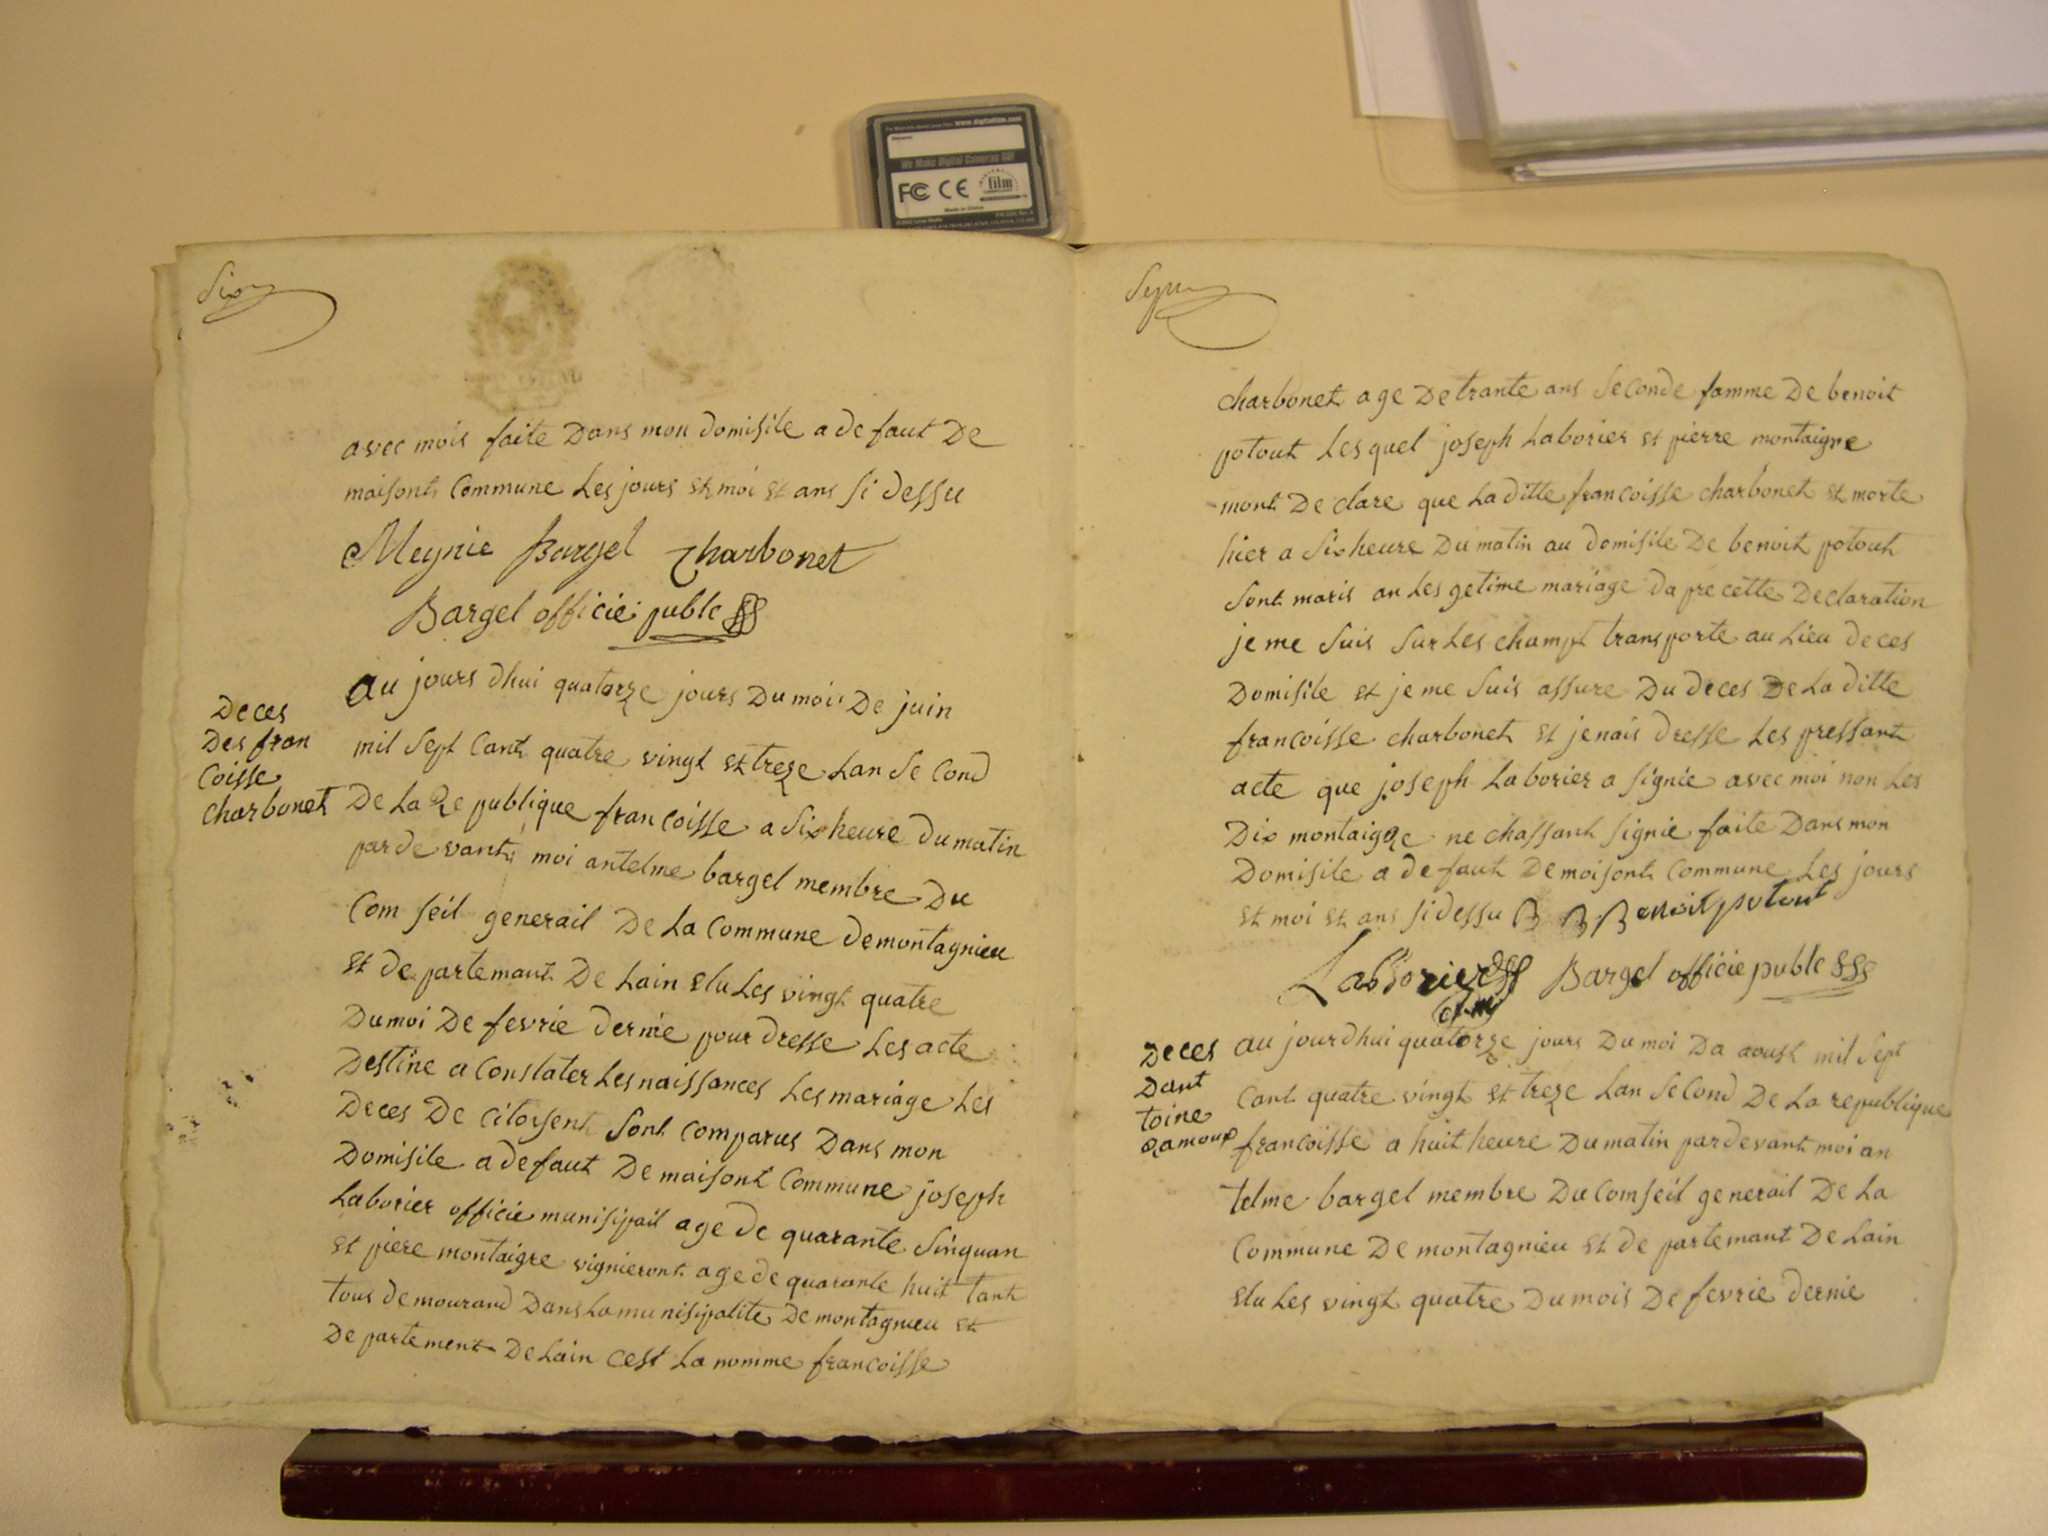 www.digitalfilm.com
We Make Digital Cameras GO!
FC CE film
Made in China
Six
avec mois faite Dans mon domisile a de faut De
maisont Commune Les jours et moi et ans si dessu
Meynie Bargel Charbonet
Bargel officié publc
Deces
Des fran
Coisse
charbonet
au jours dhui quatorze jours Du moi De juin
mil sept Cant quatre vingt et treze Lan se Cond
De La Re publique francoisse a six heure du matin
par de vant moi antelme bargel membre Du
Com seil generail De La Commune de montagnieu
et de partemant De Lain elu Les vingt quatre
Du moi De fevrie dernie pour dresse Les acte
Destine a Constater Les naissances Les mariage Les
Deces De citoisent sont comparus Dans mon
Domisile a de faut De maisont Commune joseph
Laborier officie munisipail age de quarante sinquan
et piere montaigre vignieront age de quarante huit tant
tous de mourand Dans La munisipalite De montagnieu et
De partement De Lain cest La nomme francoisse
Sept
charbonet age De trante ans seconde famme De benoit
potout Lesquel joseph Laborier et pierre montaigre
mont De clare que La ditte francoisse charbonet et morte
hier a six heure Du matin au domisile De benoit potout
sont maris an Les getime mariage da pre cette Declaration
je me suis sur Les champt transporte au Lieu de ces
Domisile et je me suis assure Du deces De La ditte
francoisse charbonet et je nais dresse Les pressant
acte que joseph Laborier a signie avec moi non Les
Dix montaigre ne chassant signie faite Dans mon
Domisile a de faut De moisont Commune Les jours
et moi et ans si dessu B B Benoit potout
Laborier Bargel officie publc
Deces
Dant
toine
Ramoux
au jourdhui quatorze jours Du moi Da aoust mil sept
Cant quatre vingt et treze Lan se Cond De La republique
francoisse a huit heure Du matin par devant moi an
telme bargel membre Du Comseil generail De La
Commune De montagnieu et de partemant De Lain
elu Les vingt quatre Du mois De fevrie dernie